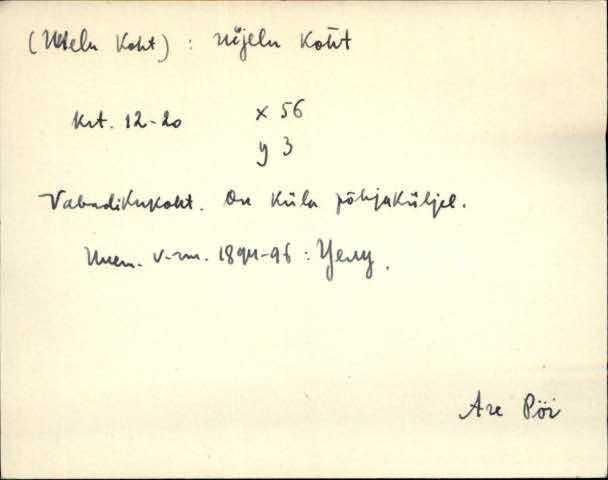 (Uielu Koht) : uijelu Koht
krt. 12-20 x 56
y 3
Vabadikukoht. On küla põhjaküljel.
V-rm. 1894-96 : Уелу.
Are Pöi